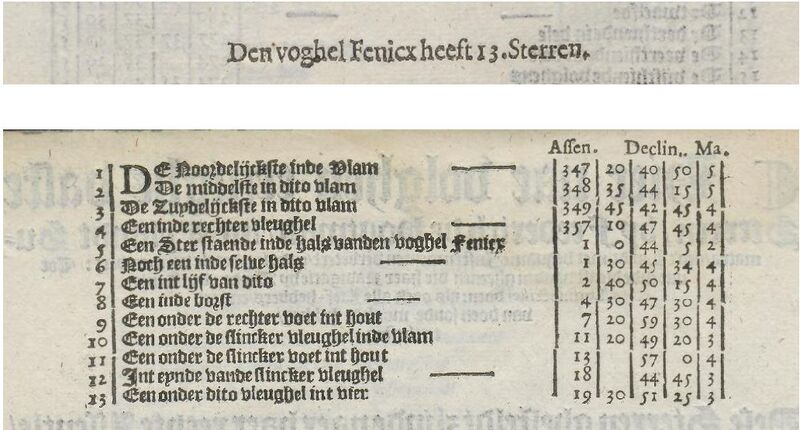 Den voghel Fenicx heeft 13. Sterren.
Assen. Declin. Ma.
1 DE Noordelijckste inde Vlam 347 20 40 50 5
2 De middelste in dito vlam 348 35 44 15 5
3 De Zuydelijckste in dito vlam 349 45 42 45 4
4 Een inde rechter vleughel 357 10 47 45 4
5 Een Ster staende inde hals vanden voghel Fenicx 1 0 44 5 2
6 Noch een inde selve hals 1 30 45 34 4
7 Een int lijf van dito 2 40 50 15 4
8 Een inde borst 4 30 47 30 4
9 Een onder de rechter voet int hout 7 20 59 30 4
10 Een onder de slincker vleughel inde vlam 11 20 49 20 3
11 Een onder de slincker voet int hout 13 57 0 4
12 Int eynde vande slincker vleughel 18 44 45 3
13 Een onder dito vleughel int vier 19 30 51 25 3